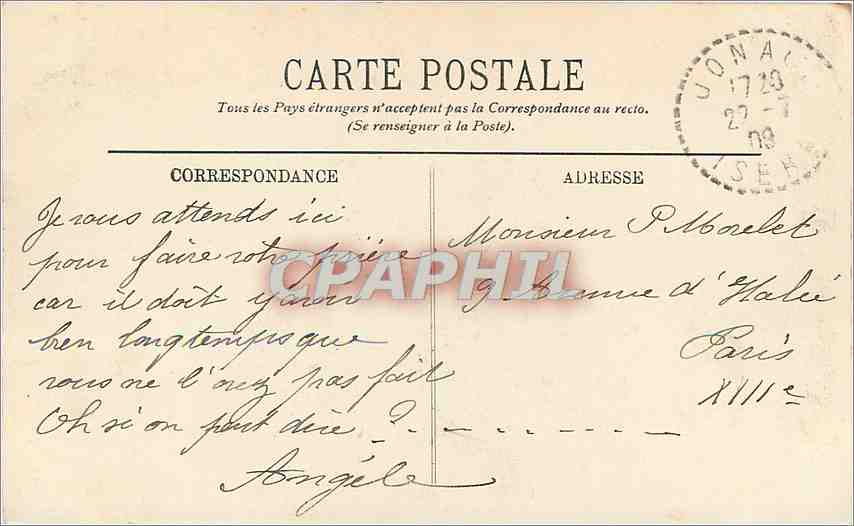 CARTE POSTALE
Tous les Pays étrangers n'acceptent pas la Correspondance au recto.
(Se renseigner à la Poste).
JONA
17 20
22 -
09
ISERE
CORRESPONDANCE
ADRESSE
Je vous attends ici
pour faire votre prière
car il doit y avoir
ben longtemps que
vous ne l'avez pas fait
Oh si on peut dire ?
Angèle
Monsieur P Morelet
9 Avenue d'Italie
Paris
XIIIe
CPAPHIL